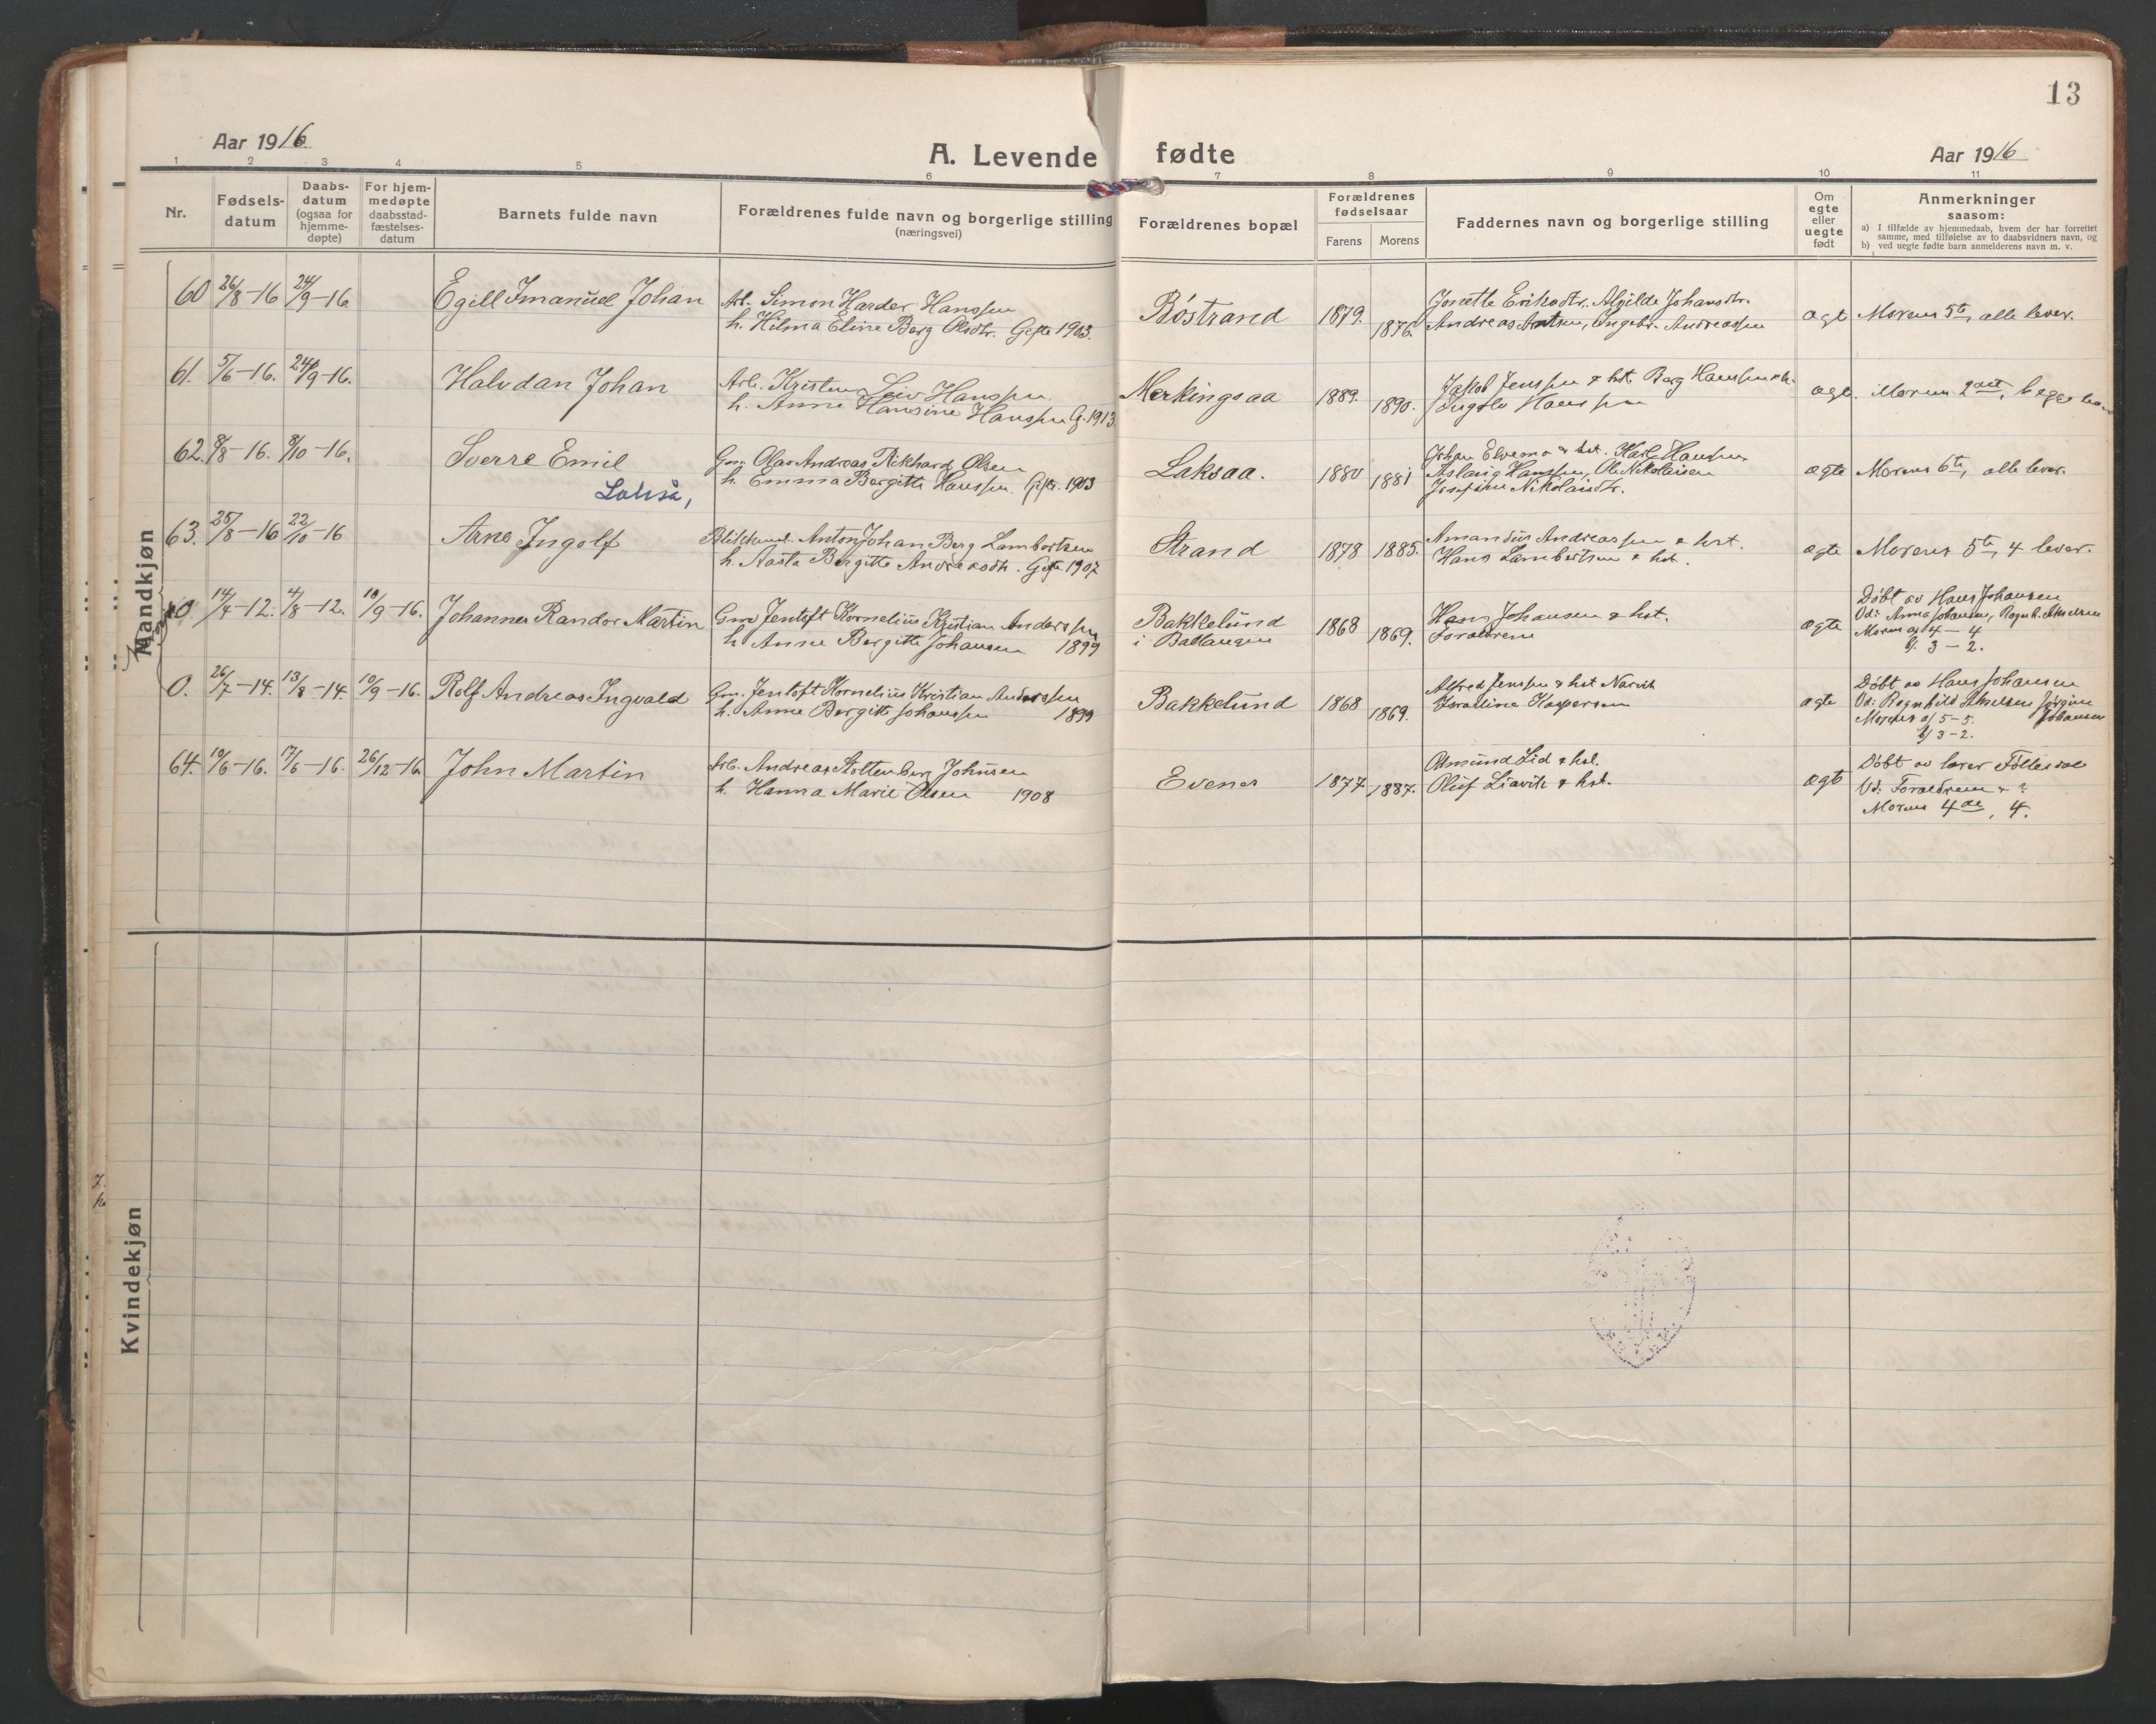 13
Aar 1916.
A. Levende fødte
Aar 1916
1 2 3 4 5 6 7 8 9 10 11
Nr.
Fødsels-
datum
Daabs-
datum
(ogsaa for
hjemme-
døpte)
For hjem-
medøpte
daabsstad-
fæstelses-
datum
Barnets fulde navn
Forældrenes fulde navn og borgerlige stilling
(næringsvei)
Forældrenes bopæl
Forældrenes
fødselsaar
Farens Morens
Faddernes navn og borgerlige stilling
Om
egte
eller
uegte
født
Anmerkninger
saasom:
a) I tilfælde av hjemmedaab, hvem der har forrettet
samme, med tilføielse av to daabsvidners navn, og
b) ved uegte fødte barn anmelderens navn m. v.
Mandkjøn
60 26/8-16 24/9-16 Egill Imanuel Johan
Arb. Simon Harder Hanssen
h. Hilma Eline Berg Olsdtr. Gifte 1903.
Bøstrand 1879. 1876.
Jonette Eriksdtr. Alvilde Johansdtr.
Andreas Antsen, Ingebr. Andreassen
ægt Morens 5te, alle lever.
61. 5/6-16. 24/9-16. Halvdan Johan
Arb. Kristen Leiv Hanssen
h. Anna Hansine Hanssen G. 1913.
Merkingsaa 1889. 1890.
Jakob Jenssen & hst. Berg Hanssen & h.
Ingolv Hanssen
ægt. Morens 2det, begge lever
62. 8/8-16. 8/10-16. Sverre Emil
Lakså,
Gm. Olav Andreas Rikhard Olsen
h. Emma Bergitte Hanssen. Gifte. 1903
Laksaa. 1880 1881
Johan Elvemo & hst. Karl Hanssen
Aslaug Hanssen, Ole Nikolaisen
Josefine Nikolaisdtr.
ægte Morens 6te, alle lever.
63. 25/8-16 22/10-16 Arne Ingolf
Anton Johan Berg Lambertsen
h. Aasta Bergitte Andreasdtr. Gifte 1907
Strand 1878 1885.
Amandus Andreassen & hst.
Hans Lambertsen & hst.
ægte Morens 5te, 4 lever.
0. 14/4-12. 4/8-12. 10/9-16. Johannes Randor Martin
Gm. Jentoft Kornelius Kristian Anderssen
h. Anne Bergitte Johansen 1899
Bakkelund
i Ballangen
1868 1869.
Hans Johansen & hst.
Forældrene
ægte
Døbt av Hans Johansen
Vd: Anna Johansen, Ragnh. Akselsen
Morens a) 4 - 4
b) 3 - 2.
0. 26/7-14. 13/8-14. 10/9-16. Rolf Andreas Ingvald
Gm. Jentoft Kornelius Kristian Anderssen
h. Anne Bergitte Johanssen 1899
Bakkelund 1868 1869.
Alfred Jenssen & hst Narvik
Kaspersen
ægte
Døbt av Hans Johansen
Vd: Ragnhild Akselsen Jørgine
Morens a) 5 - 5. Johansen
b) 3 - 2.
64. 10/6-16. 17/6-16. 26/12-16. John Martin
Arb. Andreas Stoltenberg Johnsen
h. Hanna Marie Olsen 1908
Evenes 1877. 1887.
Amund Lid & hst.
Oluf Liavik & hst.
ægt
Døbt av lærer Follesøe
Vd: Forældrene & ?
Morens 4de, 4.
Kvindekjøn